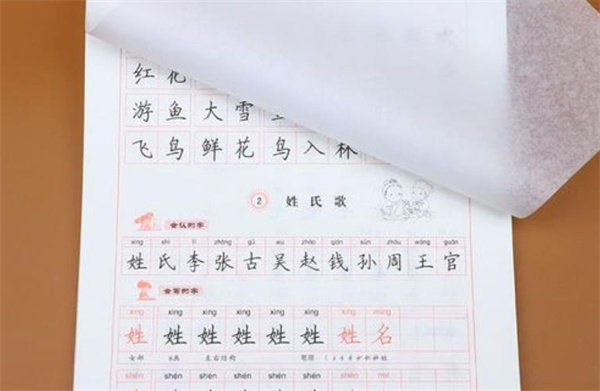 红花
游鱼大雪
飞鸟鲜花鸟入林
2 姓氏歌
会认的字
xìng shì lǐ zhāng gǔ wú zhào qián sūn zhōu wáng guān
姓氏李张古吴赵钱孙周王官
会写的字
xìng xìng xìng xìng xìng xìng xìng míng
姓姓姓姓姓姓姓名
女部 8画 左右结构 笔顺
shén shén shén shén shén shén shén me